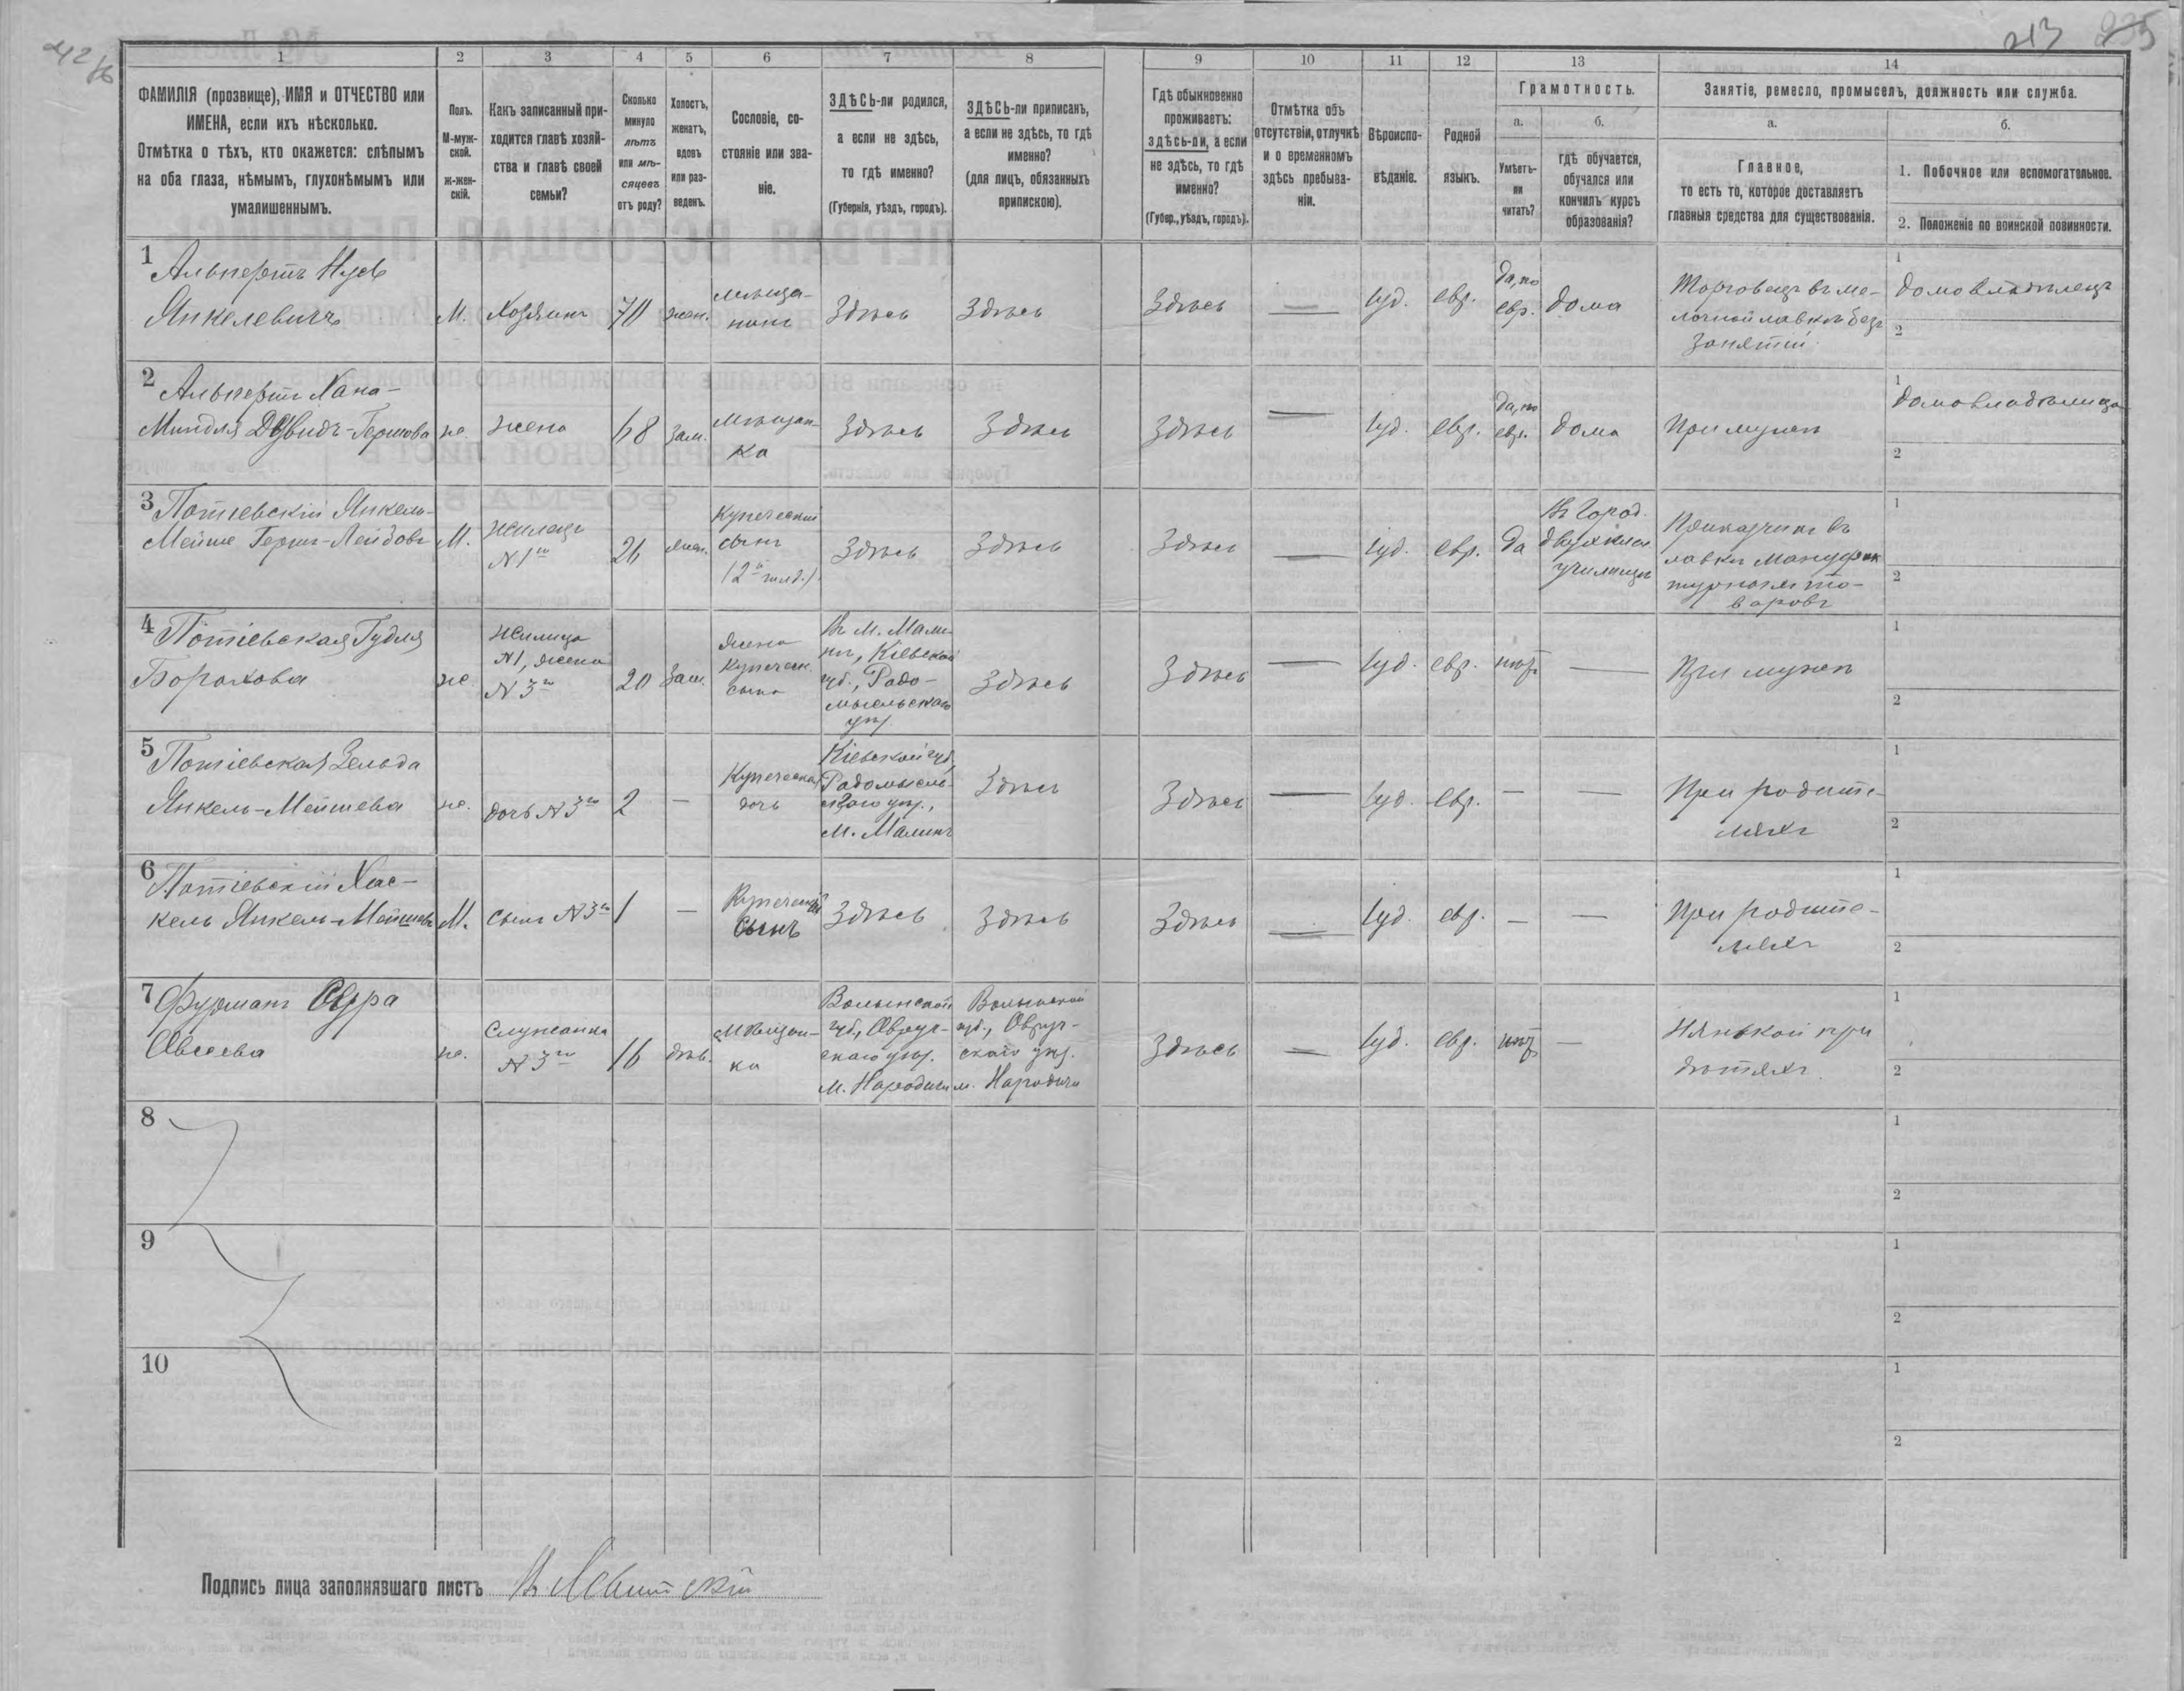 213
1 2 3 4 5 6 7 8 9 10 11 12 13 14
ФАМИЛІЯ (прозвище), ИМЯ и ОТЧЕСТВО или
ИМЕНА, если ихъ нѣсколько.
Отмѣтка о тѣхъ, кто окажется: слѣпымъ
на оба глаза, нѣмымъ, глухонѣмымъ или
умалишеннымъ.
Полъ.
М-муж-
ской.
ж-жен-
скій.
Какъ записанный при-
ходится главѣ хозяй-
ства и главѣ своей
семьи?
Сколько
минуло
лѣтъ
или мѣ-
сяцевъ
отъ роду?
Холостъ,
женатъ,
вдовъ
или раз-
веденъ.
Сословіе, со-
стояніе или зва-
ніе.
ЗДѢСЬ-ли родился,
а если не здѣсь,
то гдѣ именно?
(Губернія, уѣздъ, городъ).
ЗДѢСЬ-ли приписанъ,
а если не здѣсь, то гдѣ
именно?
(для лицъ, обязанныхъ
припискою).
Гдѣ обыкновенно
проживаетъ:
здѣсь-ли, а если
не здѣсь, то гдѣ
именно?
(Губер., уѣздъ, городъ).
Отмѣтка объ
отсутствіи, отлучкѣ
и о временномъ
здѣсь пребыва-
ніи.
Вѣроиспо-
вѣданіе.
Родной
языкъ.
Грамотность.
а.
Умѣетъ-
ли
читать?
б.
гдѣ обучается,
обучался или
кончилъ курсъ
образованія?
Занятіе, ремесло, промыселъ, должность или служба.
а.
Главное,
то есть то, которое доставляетъ
главныя средства для существованія.
б.
1. Побочное или вспомогательное.
2. Положеніе по воинской повинности.
1
Альпертъ Нусь
Янкелевичъ
М.
Хозяинъ
70
жен.
мѣща-
нинъ
Здѣсь
Здѣсь
Здѣсь
—
Іуд.
евр.
да, по
евр.
дома
Торговецъ въ ме-
лочной лавкѣ безъ
занятій
1 домовладѣлецъ
2
2
Альпертъ Хана-
Миндля Давидъ-Гершова
ж.
жена
68
зам.
мѣщан-
ка
Здѣсь
Здѣсь
Здѣсь
—
Іуд.
евр.
да, по
евр.
дома
При мужѣ
1 домовладѣлица
2
3
Потіевскій Янкель-
Мейше Герш-Лейбовъ
М.
жилецъ
N 1го
26
жен.
Купеческій
сынъ
(2й гильд.)
Здѣсь
Здѣсь
Здѣсь
—
Іуд.
евр.
да
въ Город.
двухклас.
училищѣ
Приказчикъ въ
лавкѣ мануфак
турныхъ то-
варовъ
1
2
4
Потіевская Гудля
Борохова
ж.
жилица
N 1, жена
N 3го
20
зам.
жена
купеческ.
сына
въ м. Мали-
нѣ, Кіевской
губ., Радо-
мысльскаго
уѣз.
Здѣсь
Здѣсь
—
Іуд.
евр.
нѣтъ
—
При мужѣ
1
2
5
Потіевская Зельда
Янкель-Мейшева
ж.
дочь N 3го
2
—
Купеческая
дочь
Кіевской губ.,
Радомысль-
скаго уѣз.,
м. Малинѣ
Здѣсь
Здѣсь
—
Іуд.
евр.
—
—
При родите-
ляхъ
1
2
6
Потіевскій Хас-
кель Янкель-Мейшевъ
М.
сынъ N 3го
1
—
Купеческій
сынъ
Здѣсь
Здѣсь
Здѣсь
—
Іуд.
евр.
—
—
При родите-
ляхъ
1
2
7
Фурманъ Сура
Овсеева
ж.
служанка
N 3го
16
дѣв.
мѣщан-
ка
Волынской
губ., Овруч-
скаго уѣз.
м. Народичи
Волынской
губ., Овруч-
скаго уѣз.
м. Народичи
Здѣсь
—
Іуд.
евр.
нѣтъ
—
Нянькой при
дѣтяхъ
1
2
8
1
2
9
1
2
10
1
2
Подпись лица заполнявшаго листъ